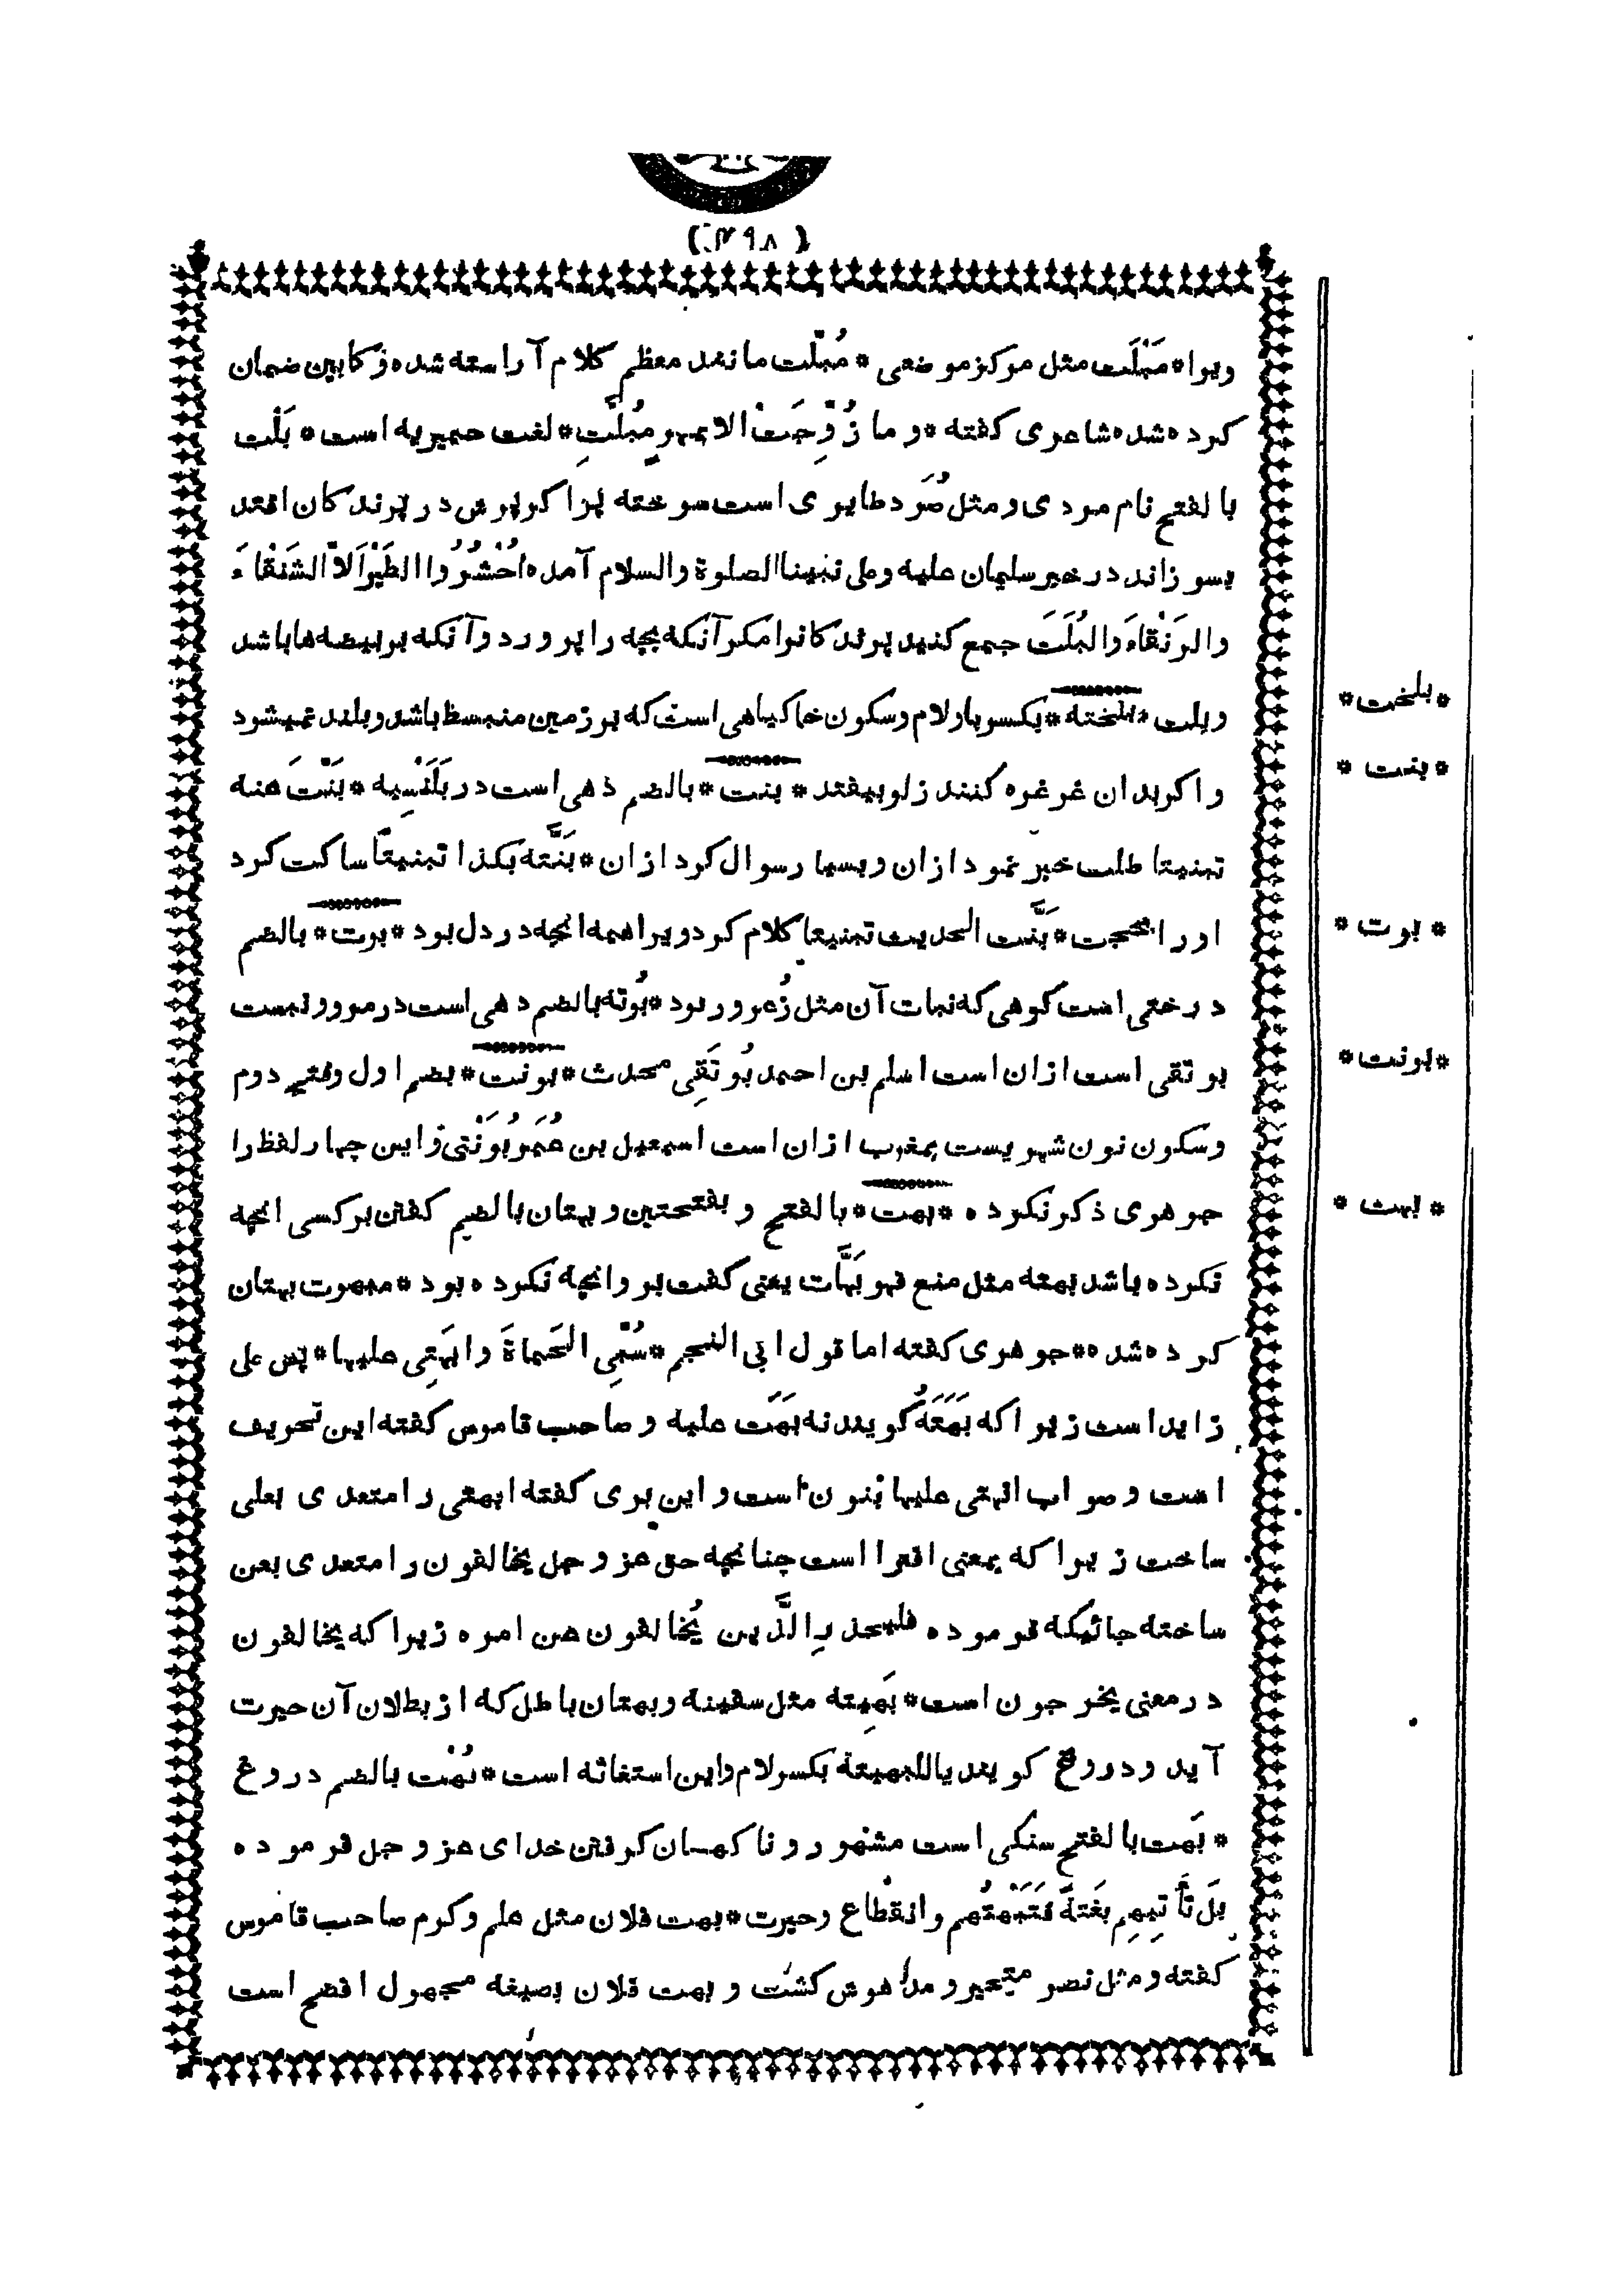 (۲۹۸)
ویرا * مَبْلَت مثل مرکز موضعی * مُبَلّت مانند معظم کلام آراسته شده و کابین ضمان
کرده شده شاعری کفته * و ما زُوِّجَتْ الا بمهرٍ مُبَلَّتِ * لغت حمیریه است * بَلْت
بالفتح نام مردی و مثل صُرَد طایری است سوخته پر اکر پرش در پرندکان افتد
بسوزاند در خبر سلیمان علیه و علی نبینا الصلوة والسلام آمده اُحْشُرُوا الطَیْرَ اَلاّ الشَنْقَاءَ
والرَنْقَاءَ والبُلَتَ جمع کنید پرندکانرا مکر آنکه بچه را پرورد و آنکه بر بیضه ها باشد
و بلت * بلخته * بکسر با و لام و سکون خا کیاهی است که بر زمین منبسط باشد و بلند نمیشود
و اکر بدان غرغره کنند زلو بیفتد * بنت * بالضم دهی است در بَلَنْسِیه * بَنّتَ عنه
تبنیتا طلب خبر نمود ازان و بسیار سوال کرد ازان * بَنَّتَه بکذا تبنیتًا ساکت کرد
اورا بحجت * بَنَّت الحدیث تبنیتا کلام کرد ویرا همه انچه در دل بود * بوت * بالضم
درختی است کوهی که نبات آن مثل زُعرور بود * بُوتَه بالضم دهی است در مرو و نسبت
بوتقی است ازان است اسلم بن احمد بُوتَقِی محدث * بونت * بضم اول و فتح دوم
و سکون نون شهریست بمغرب ازان است اسمعیل بن عُمَر بُوَنْتی و این چهار لفظ را
جوهری ذکر نکرده * بهت * بالفتح و بفتحتین و بهتان بالضم کفتن بر کسی انچه
نکرده باشد بهته مثل منع فهو بَهَّات یعنی کفت بر و انچه نکرده بود * مبهوت بهتان
کرده شده * جوهری کفته اما قول ابی النجم * سُبِّی الحَمَاةَ وابهَتِی علیها * پس علی
زاید است زیرا که بَهَتَهُ کویند نه بَهَتَ علیه و صاحب قاموس کفته این تحریف
است و صواب انهتی علیها بنون است و ابن بری کفته ابهتی را متعدی بعلی
ساخت زیرا که بمعنی افترا است چنانچه حق عز و جل یخالفون را متعدی بعن
ساخته جائیکه فرموده فلیحذرِ الَّذین یُخالفون عن امره زیرا که یخالفون
در معنی یخرجون است * بَهِیته مثل سفینه و بهتان باطل که از بطلان آن حیرت
آید و دروغ کویند یاللبهیتة بکسر لام و این استغاثه است * بُهْت بالضم دروغ
* بَهت بالفتح سنکی است مشهور و ناکهان کرفتن خدای عز و جل فرموده
بَل تَأتِیهِم بَغتَةً فَتَبهَتُهم و انقطاع و حیرت * بهت فلان مثل علم و کرم صاحب قاموس
کفته و مثل نصر متحیر و مدهوش کشت و بهت فلان بصیغه مجهول افصح است
* بلخت *
* بنت *
* بوت *
* بونت *
* بهت *